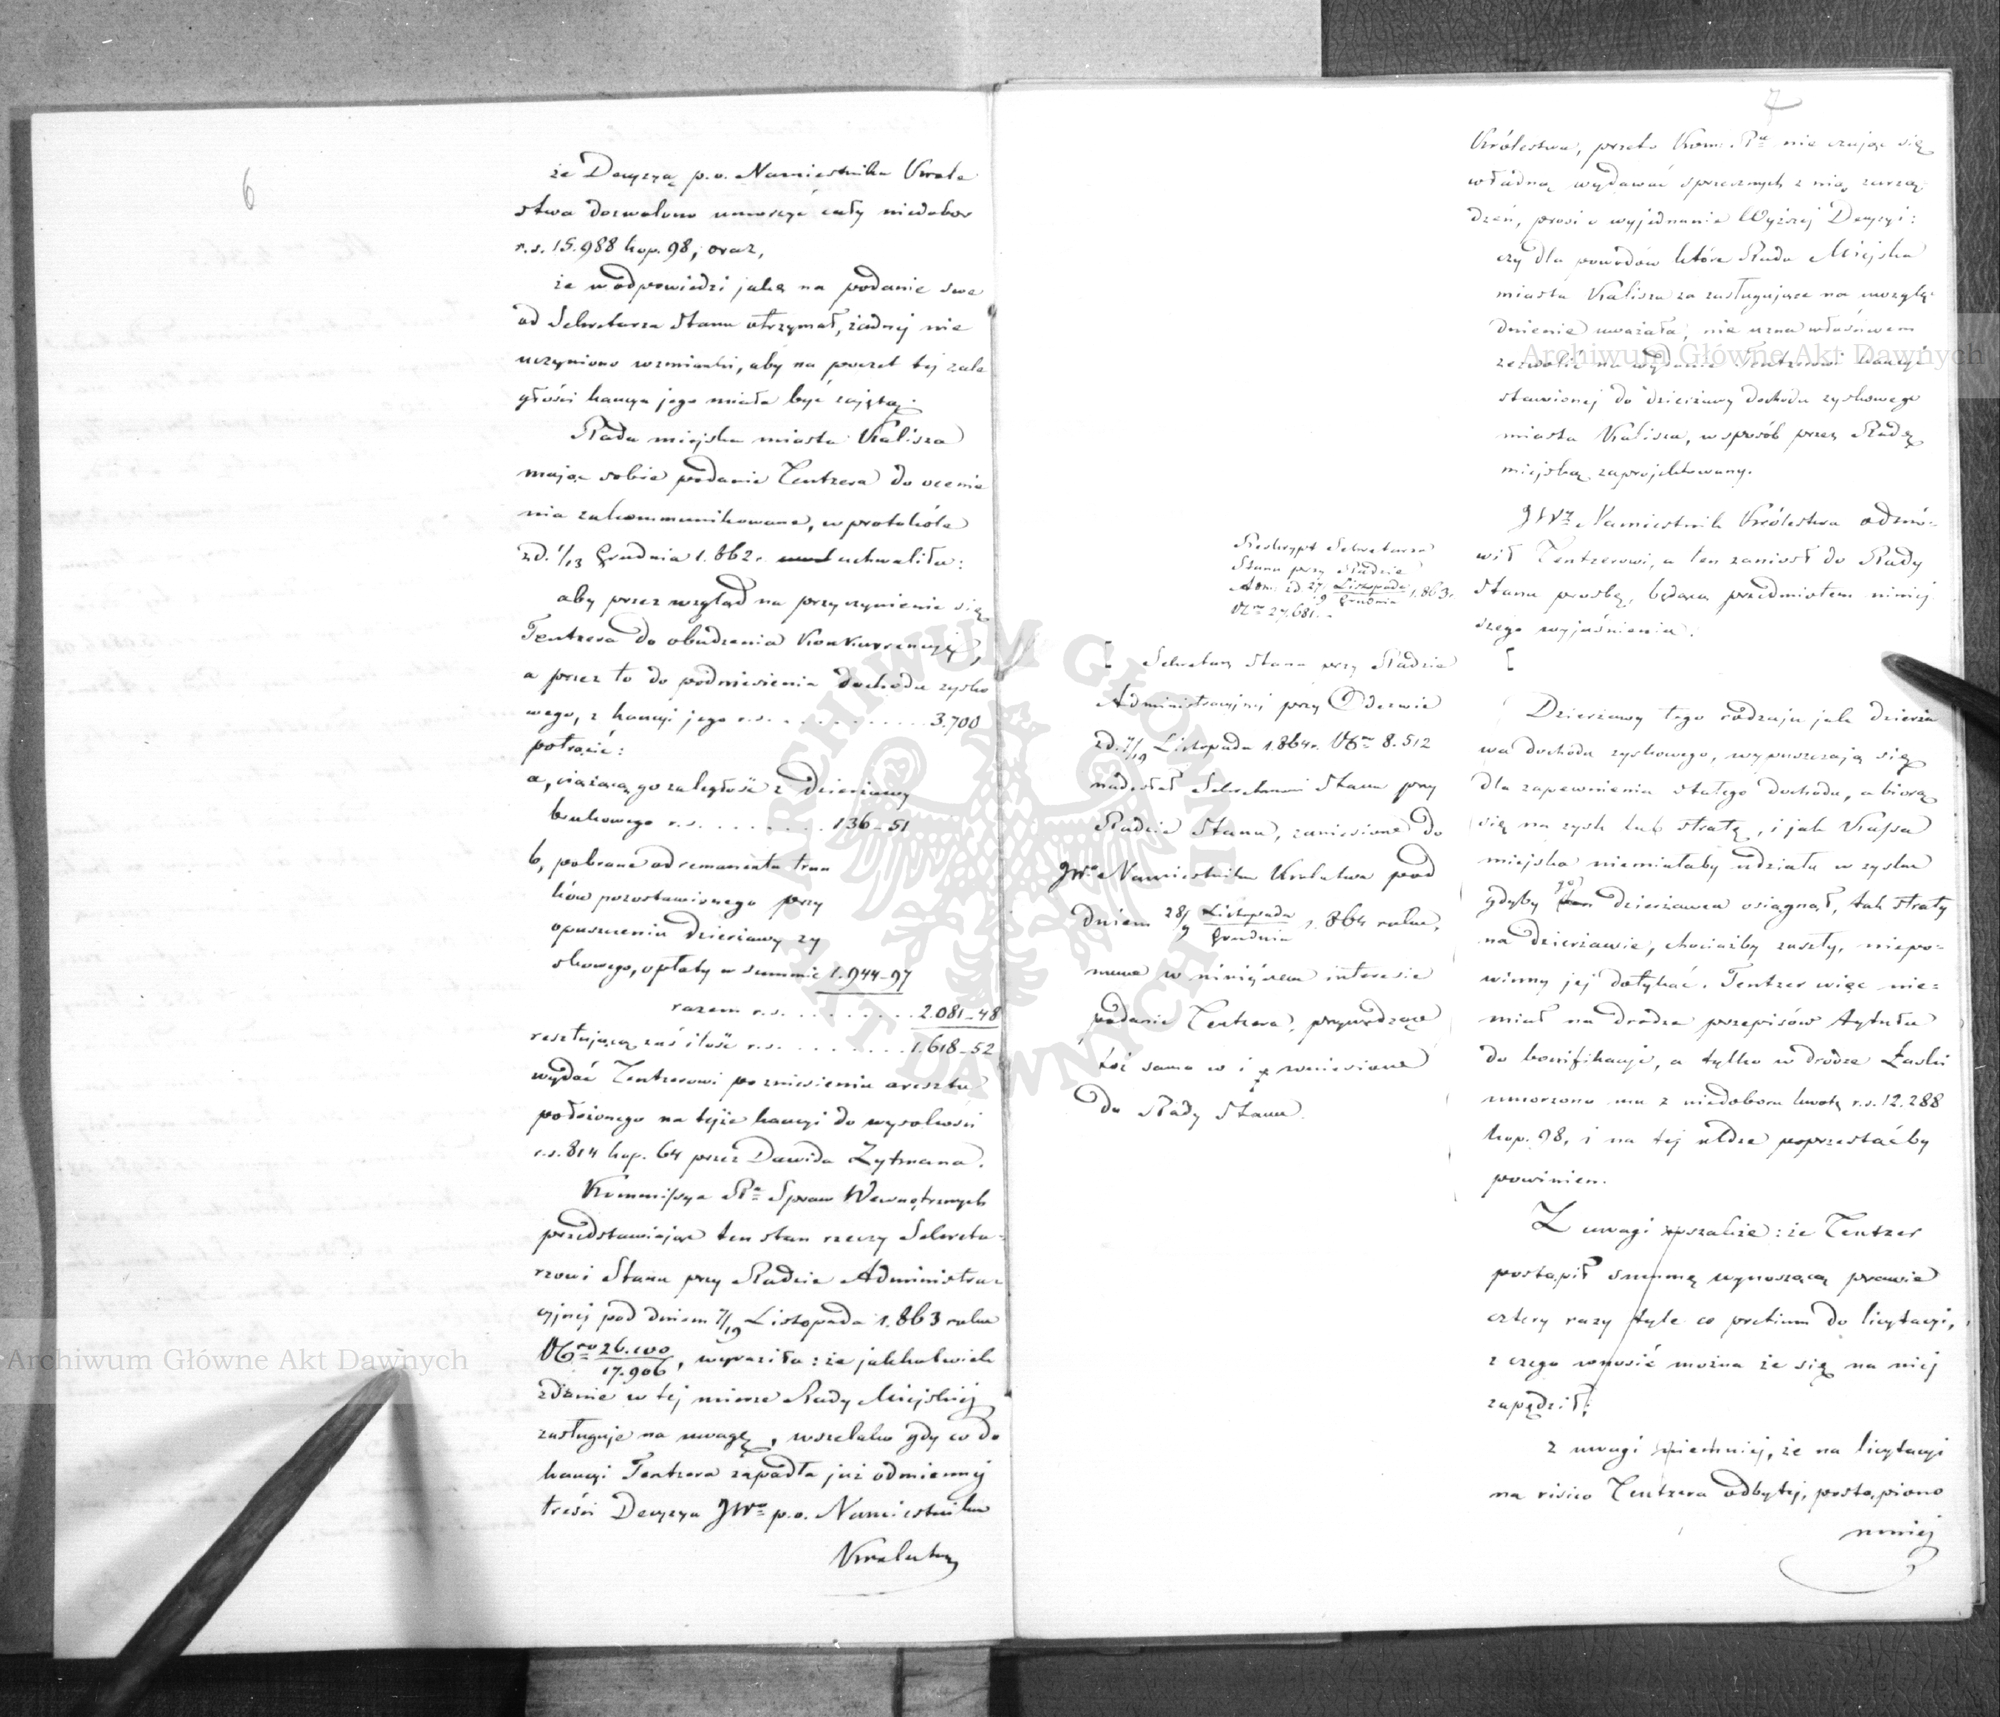 6
że Decyzyą p.o. Namiestnika Króle
stwa dozwolono umorzyć cały niedobor
r.s. 15.988 kop. 98, oraz,
że w odpowiedzi jaką na podanie swe
od Sekretarza Stanu otrzymał, żadnej nie
uczyniono wzmianki, aby na poczet tej zale
głości kaucya jego miała być zajętą.
Rada miejska miasta Kalisza
mając sobie podanie Tentzera do ocenie
nia zakommunikowane, w protokóle
z d. 1/13 Grudnia 1.862 r. uchwaliła:
aby przez wzgląd na przyczynienie się
Tentzera do obudzenia Konkurrencyi,
a przez to do podniesienia dochodu zysko
wego, z kaucyi jego r.s. . . . . . . . . . 3.700
potrącić:
a, ciążącą go zaległość z Dzierżawy
brukowego r.s. . . . . . . . . 136-51
b, pobrane od remanentu trun
ków pozostawionego przy
opuszczeniu dzierżawy zy
skowego, opłaty w summie 1.944-97
razem r.s. . . . . . . . . . 2.081-48
resztującą zaś ilość r.s. . . . . . . . 1.618-52
wydać Tentzerowi po zniesieniu aresztu
położonego na tejże kaucyi do wysokości
r.s. 814 kop. 64 przez Dawida Zytmana.
Kommissya Ra Spraw Wewnętrznych
przedstawiając ten stan rzeczy Sekreta-
rzowi Stanu przy Radzie Administra-
cyjnej pod dniem 7/19 Listopada 1.863 roku
Nro 26.100/17.906, wyraziła: że jakkolwiek
zdanie w tej mierze Rady Miejskiej
zasługuje na uwagę, wszelako gdy co do
kaucyi Tentzera zapadła już odmiennej
treści Decyzya JWo p.o. Namiestnika
Królestwa
7
Królestwa, przeto Kom. Ra nie czując się
władną wydawać sprzecznych z nią zarzą-
dzeń, prosi o wyjednanie Wyższej Decyzyi:
czy dla powodów które Rada Miejska
miasta Kalisza za zasługujące na uwzglę-
dnienie uważała, nie uzna właściwem
zezwolić na wydanie Tentzerowi kaucyi
stawionej do dzierżawy dochodu zyskowego
miasta Kalisza, w sposób przez Radę
miejską zaprojektowany.
JWy Namiestnik Królestwa odmó-
wił Tentzerowi, a ten zaniósł do Rady
Stanu prośbę, będącą przedmiotem niniej
szego wyjaśnienia.
Reskrypt Sekretarza
Stanu przy Radzie
Adm. z d. 27 Listopada/9 Grudnia 1.863.
Nro 27.681.
[ Sekretarz Stanu przy Radzie
Administracyjnej przy Odezwie
z d. 7/19 Listopada 1.864 r. No 8.512
nadesłał Sekretarzowi Stanu przy
Radzie Stanu, zaniesione do
JWo Namiestnika Królestwa pod
dniem 28/9 Listopada/Grudnia 1.864 roku,
nowe w niniejszem interesie
podanie Tentzera, przywodzące
toż samo co i wniesione
do Rady Stanu.
[
Dzierżawy tego rodzaju jak dzierża
wa dochodu zyskowego, wypuszczają się
dla zapewnienia stałego dochodu, a biorą
się na zysk lub stratę, i jak Kassa
miejska niemiałaby udziału w zysku
gdyby go dzierżawca osiągnął, tak straty
na dzierżawie, chociażby zaszły, niepo-
winny jej dotykać. Tentzer więc nie-
miał na drodze przepisów tytułu
do bonifikacyi, a tylko w drodze Łaski
umorzono mu z niedoboru kwotę r.s. 12.288
kop. 98, i na tej uldze poprzestaćby
powinien.
Z uwagi wszakże: że Tentzer
postąpił summę wynoszącą prawie
cztery razy tyle co pretium do licytacyi,
z czego wnosić można że się na niej
zapędził;
z uwagi niemniej, że na licytacyi
na risico Tentzera odbytej, postąpiono
mniej
Archiwum Główne Akt Dawnych
Archiwum Główne Akt Dawnych
ARCHIWUM GŁÓWNE AKT DAWNYCH